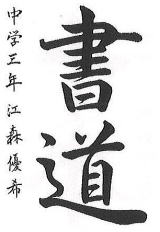 書道
中学三年 江森優希